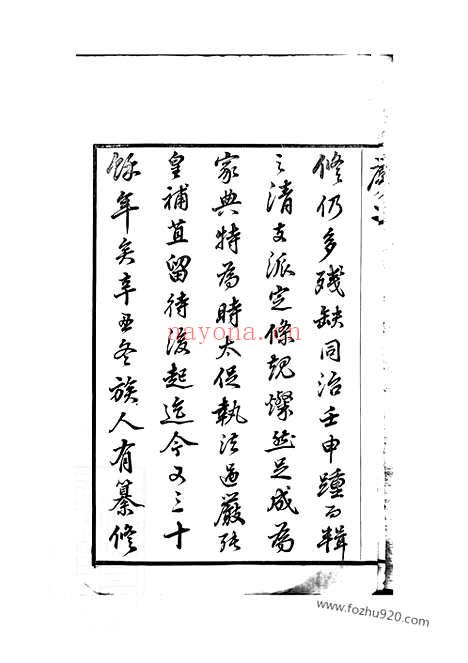 修仍多残缺同治壬申踵而輯
之清支派定條規燦然足成為
家典特為時太促執法過嚴張
皇補苴留待後起迄今又三十
餘年矣辛丑冬族人有纂修
nayona.cn
www.fozhu920.com